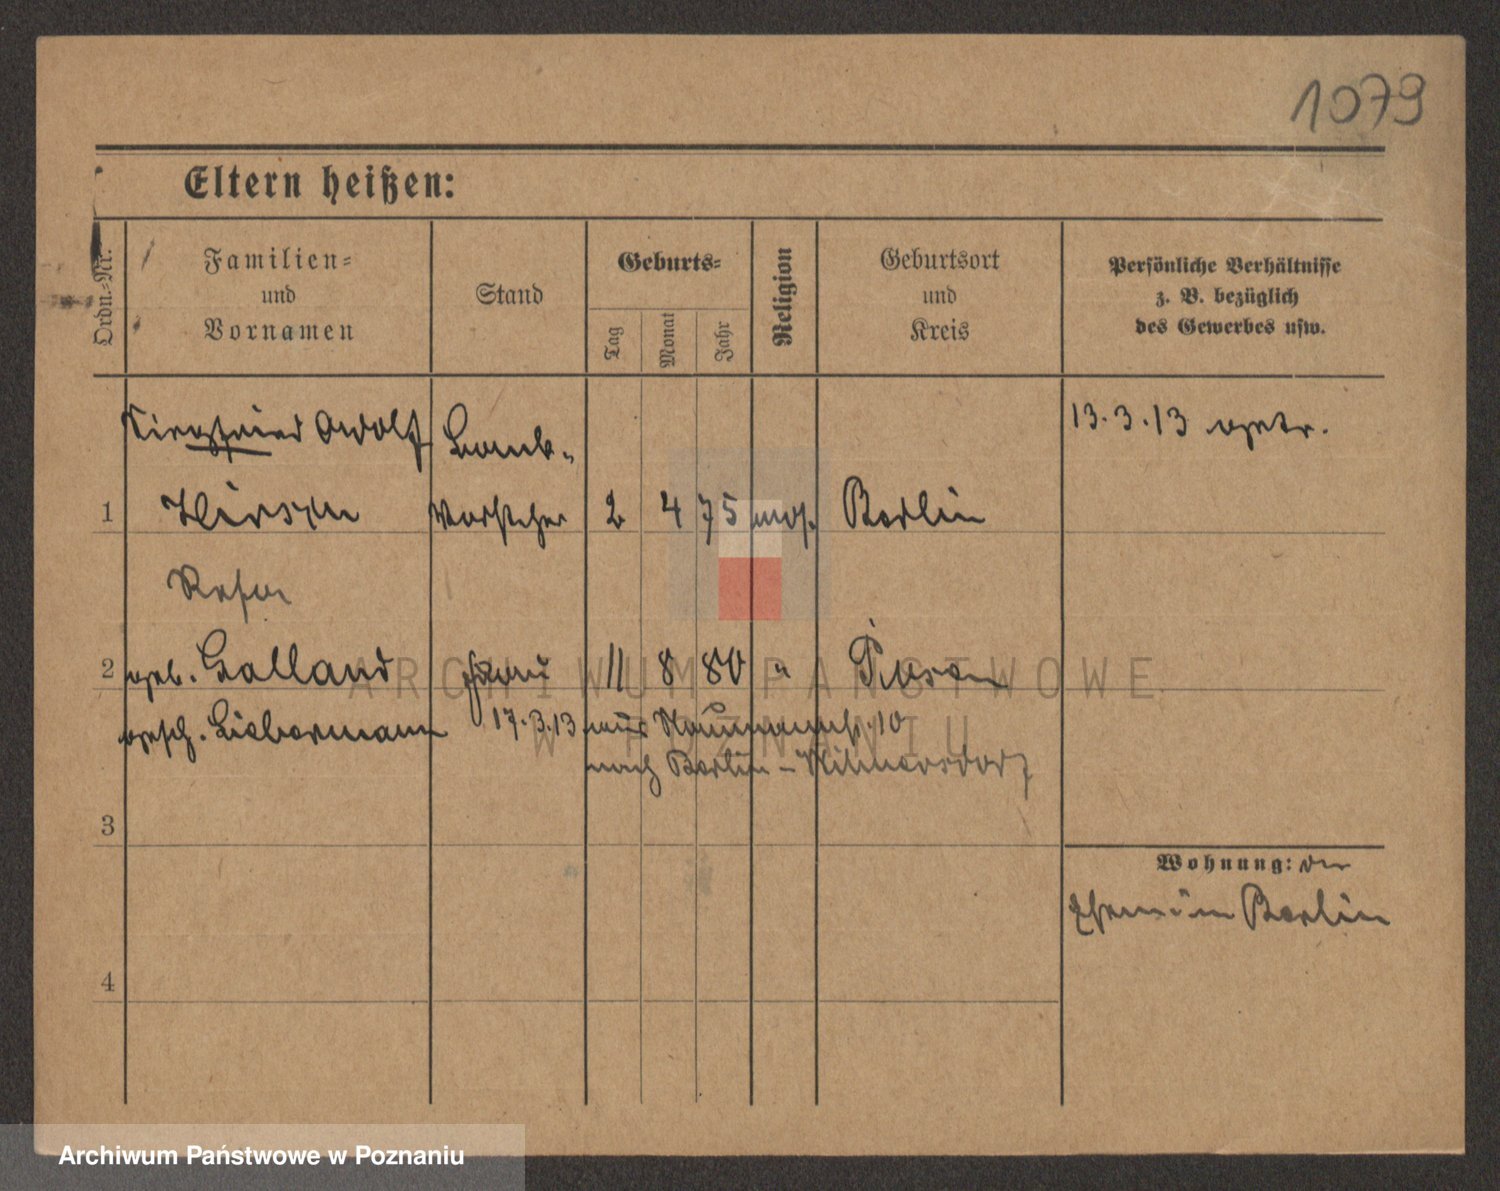 1079
Eltern heißen:
Ordn.-Nr.
Familien-
und
Vornamen
Stand
Geburts-
Tag
Monat
Jahr
Religion
Geburtsort
und
Kreis
Persönliche Verhältnisse
z. B. bezüglich
des Gewerbes usw.
Siegfried Adolf
Bank-
13.3.13 getr.
1 Hirsch Vorsteher 2 4 75 mos. Berlin
Rosa
2 geb. Galland Frau 11 8 80 " Posen
gesch. Liebermann 17.3.13 aus Naumannstr. 10
nach Berlin-Wilmersdorf
3
Wohnung: der
Ehemann Berlin
4
ARCHIWUM PAŃSTWOWE
W POZNANIU
Archiwum Państwowe w Poznaniu